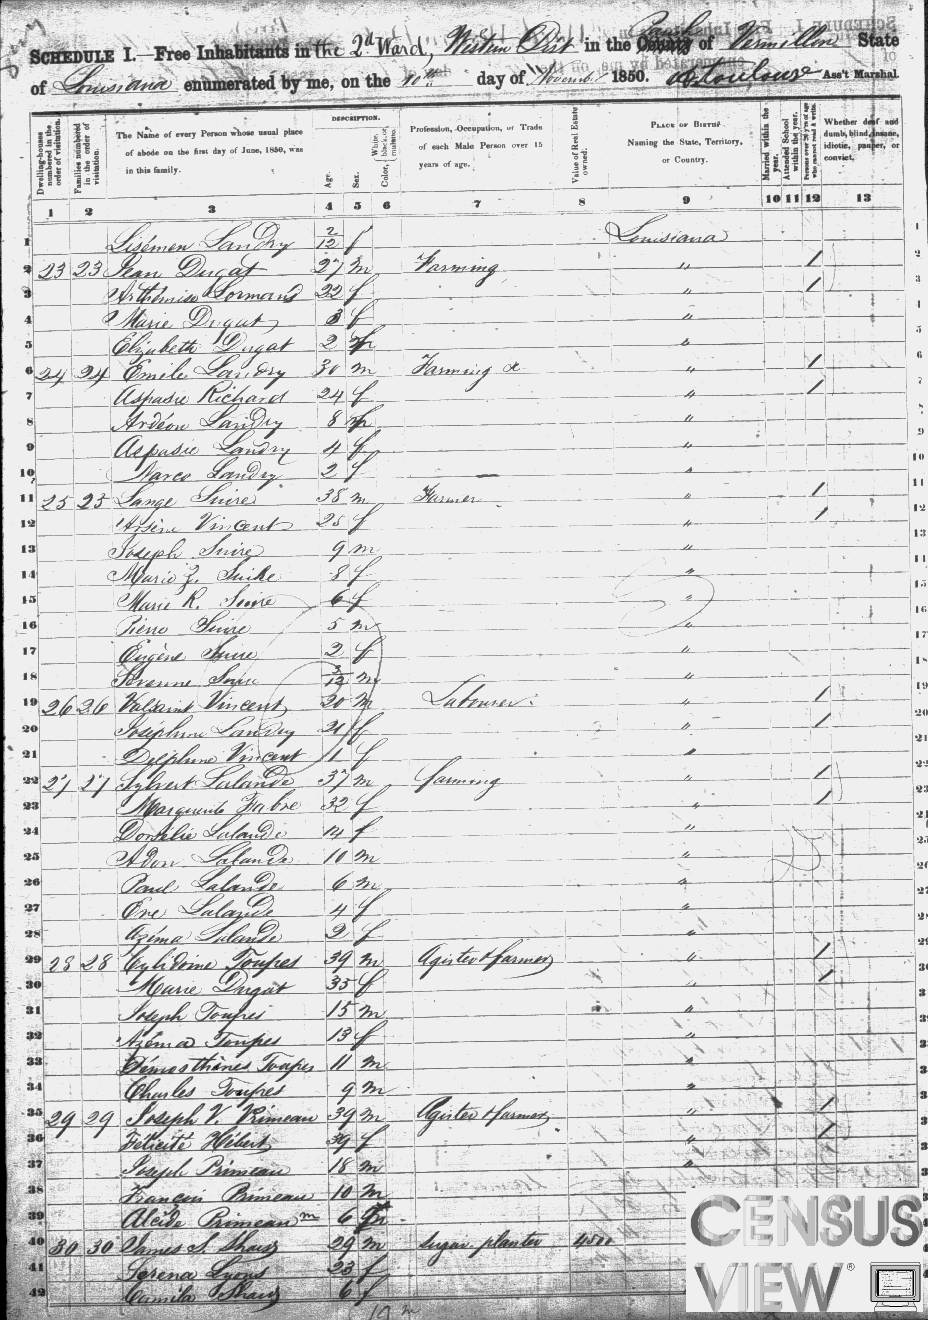 SCHEDULE I.—Free Inhabitants in the 2d Ward, Western Dist in the County Parish of Vermillon State
of Louisiana enumerated by me, on the 10th day of Novembr 1850. Ass't Marshal.
Dwelling-houses numbered in the order of visitation.
Families numbered in the order of visitation.
The Name of every Person whose usual place of abode on the first day of June, 1850, was in this family.
DESCRIPTION.
Age.
Sex.
Color, White, black, or mulatto.
Profession, Occupation, or Trade of each Male Person over 15 years of age.
Value of Real Estate owned.
PLACE OF BIRTH
Naming the State, Territory, or Country.
Married within the year.
Attended School within the year.
Persons over 20 y'rs of age who cannot read & write.
Whether deaf and dumb, blind, insane, idiotic, pauper, or convict.
1 2 3 4 5 6 7 8 9 10 11 12 13
1 Landry 2/12 f Louisiana
2 23 23 Jean Dugat 27 m Farming " 1
3 22 f " 1
4 Marie Dugat 3 f "
5 Elizabeth Dugat 2 f "
6 24 24 Emile Landry 30 m Farming " 1
7 Aspasie Richard 24 f " 1
8 Ardéon Landry 8 "
9 Aspasie Landry 4 f "
10 Landry 2 f "
11 25 25 Lange Suire 38 m Farmer " 1
12 Arsène Vincent 28 f " 1
13 Joseph Suire 9 m "
14 Marie Z. Suire 8 f "
15 Marie R. Suire 6 f "
16 Pierre Suire 5 m "
17 Eugène Suire 2 f "
18 Suire 3/12 m "
19 26 26 Valsaint Vincent 20 m Labourer " 1
20 Joséphine Landry 21 f " 1
21 Delphine Vincent 11 f "
22 27 27 Sylvert Lalande 37 m farming " 1
23 Marguerite Fabre 32 f " 1
24 Dorsélie Lalande 14 f "
25 Adon Lalande 10 m "
26 Paul Lalande 6 m "
27 Eve Lalande 4 f "
28 Azéma Lalande 2 f "
29 28 28 Toupes 39 m Agister & farmer " 1
30 Marie Dugat 35 f " 1
31 Joseph Toupes 15 m "
32 Azéma Toupes 13 f "
33 Démosthènes Toupes 11 m "
34 Charles Toupes 9 m "
35 29 29 Joseph V. Primeau 39 m Agister & farmer " 1
36 Félicité Hébert 39 f " 1
37 Joseph Primeau 18 m "
38 Francois Primeau 10 m
39 Alcide Primeau m 6 m
40 30 30 James S. Shaw 29 m Sugar planter 4500
41 Serena Lyons 23 f
42 Camila Shaw 6 f
CENSUS
VIEW®